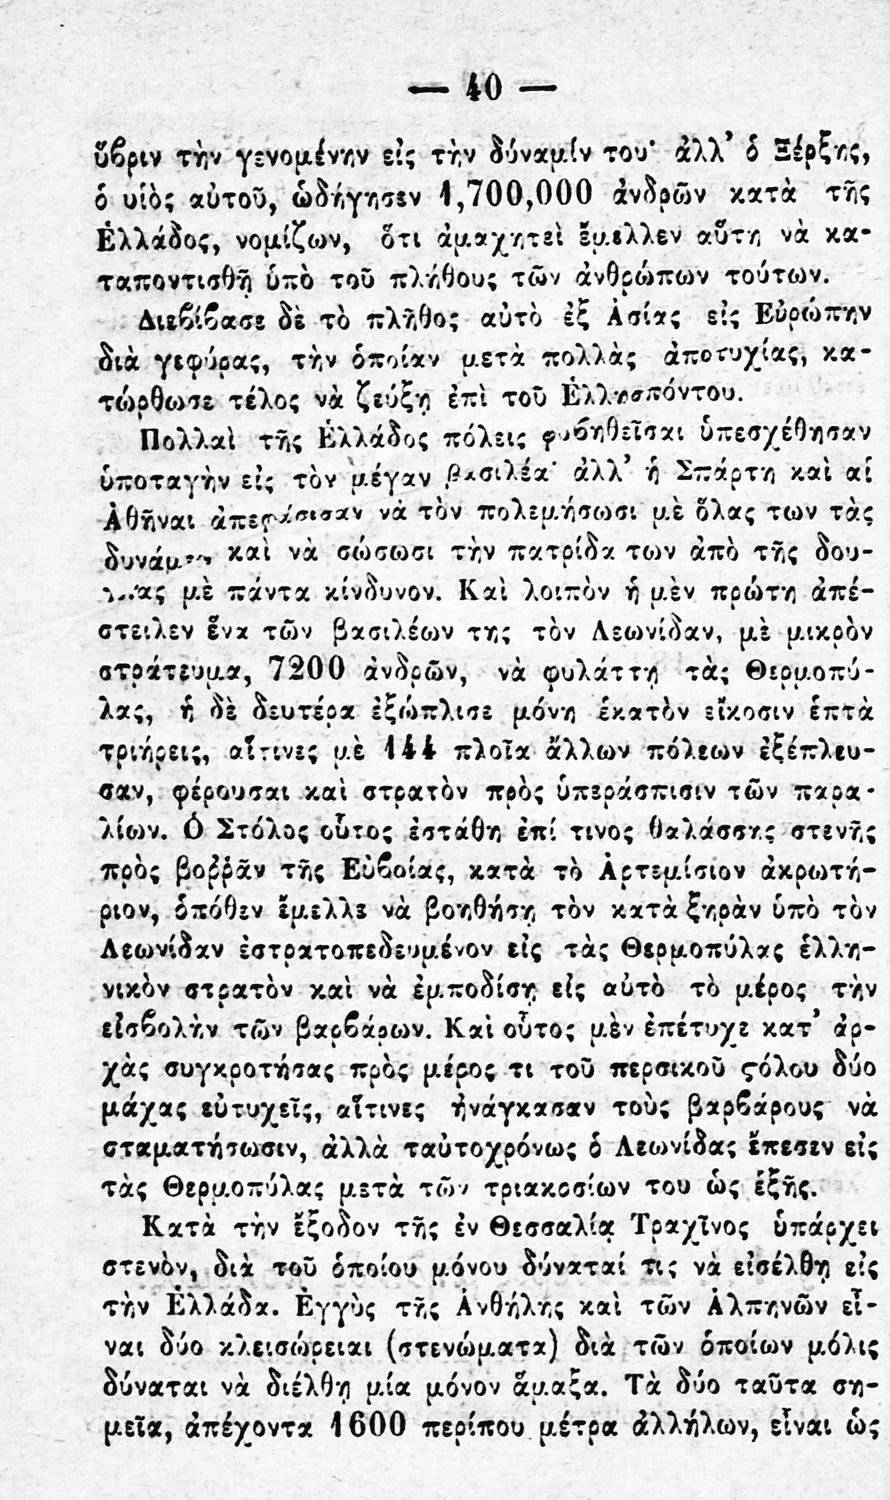 — 40 —
ὕβριν τὴν γενομένην εἰς τὴν δύναμίν του· ἀλλ’ ὁ Ξέρξης,
ὁ υἱὸς αὐτοῦ, ὡδήγησεν 1,700,000 ἀνδρῶν κατὰ τῆς
Ἑλλάδος, νομίζων, ὅτι ἀμαχητεὶ ἔμελλεν αὕτη νὰ κα-
ταποντισθῇ ὑπὸ τοῦ πλήθους τῶν ἀνθρώπων τούτων.
Διεβίβασε δὲ τὸ πλῆθος αὐτὸ ἐξ Ἀσίας εἰς Εὐρώπην
διὰ γεφύρας, τὴν ὁποίαν μετὰ πολλὰς ἀποτυχίας, κα-
τώρθωσε τέλος νὰ ζεύξῃ ἐπὶ τοῦ Ἑλλησπόντου.
Πολλαὶ τῆς Ἑλλάδος πόλεις φοβηθεῖσαι ὑπεσχέθησαν
ὑποταγὴν εἰς τὸν μέγαν βασιλέα· ἀλλ’ ἡ Σπάρτη καὶ αἱ
Ἀθῆναι ἀπεφάσισαν νὰ τὸν πολεμήσωσι μὲ ὅλας των τὰς
καὶ νὰ σώσωσι τὴν πατρίδα των ἀπὸ τῆς δου-
μὲ πάντα κίνδυνον. Καὶ λοιπὸν ἡ μὲν πρώτη ἀπέ-
στειλεν ἕνα τῶν βασιλέων της τὸν Λεωνίδαν, μὲ μικρὸν
στράτευμα, 7200 ἀνδρῶν, νὰ φυλάττῃ τὰς Θερμοπύ-
λας, ἡ δὲ δευτέρα ἐξώπλισε μόνη ἑκατὸν εἴκοσιν ἑπτὰ
τριήρεις, αἵτινες μὲ 144 πλοῖα ἄλλων πόλεων ἐξέπλευ-
σαν, φέρουσαι καὶ στρατὸν πρὸς ὑπεράσπισιν τῶν παρα-
λίων. Ὁ Στόλος οὗτος ἐστάθη ἐπί τινος θαλάσσης στενῆς
πρὸς βοῤῥᾶν τῆς Εὐβοίας, κατὰ τὸ Ἀρτεμίσιον ἀκρωτή-
ριον, ὁπόθεν ἔμελλε νὰ βοηθήσῃ τὸν κατὰ ξηρὰν ὑπὸ τὸν
Λεωνίδαν ἐστρατοπεδευμένον εἰς τὰς Θερμοπύλας ἑλλη-
νικὸν στρατὸν καὶ νὰ ἐμποδίσῃ εἰς αὐτὸ τὸ μέρος τὴν
εἰσβολὴν τῶν βαρβάρων. Καὶ οὗτος μὲν ἐπέτυχε κατ’ ἀρ-
χὰς συγκροτήσας πρὸς μέρος τι τοῦ περσικοῦ ϛόλου δύο
μάχας εὐτυχεῖς, αἵτινες ἠνάγκασαν τοὺς βαρβάρους νὰ
σταματήσωσιν, ἀλλὰ ταὐτοχρόνως ὁ Λεωνίδας ἔπεσεν εἰς
τὰς Θερμοπύλας μετὰ τῶν τριακοσίων του ὡς ἑξῆς.
Κατὰ τὴν ἔξοδον τῆς ἐν Θεσσαλίᾳ Τραχῖνος ὑπάρχει
στενὸν, διὰ τοῦ ὁποίου μόνου δύναταί τις νὰ εἰσέλθῃ εἰς
τὴν Ἑλλάδα. Ἐγγὺς τῆς Ἀνθήλης καὶ τῶν Ἀλπηνῶν εἶ-
ναι δύο κλεισώρειαι (στενώματα) διὰ τῶν ὁποίων μόλις
δύναται νὰ διέλθῃ μία μόνον ἅμαξα. Τὰ δύο ταῦτα ση-
μεῖα, ἀπέχοντα 1600 περίπου μέτρα ἀλλήλων, εἶναι ὡς